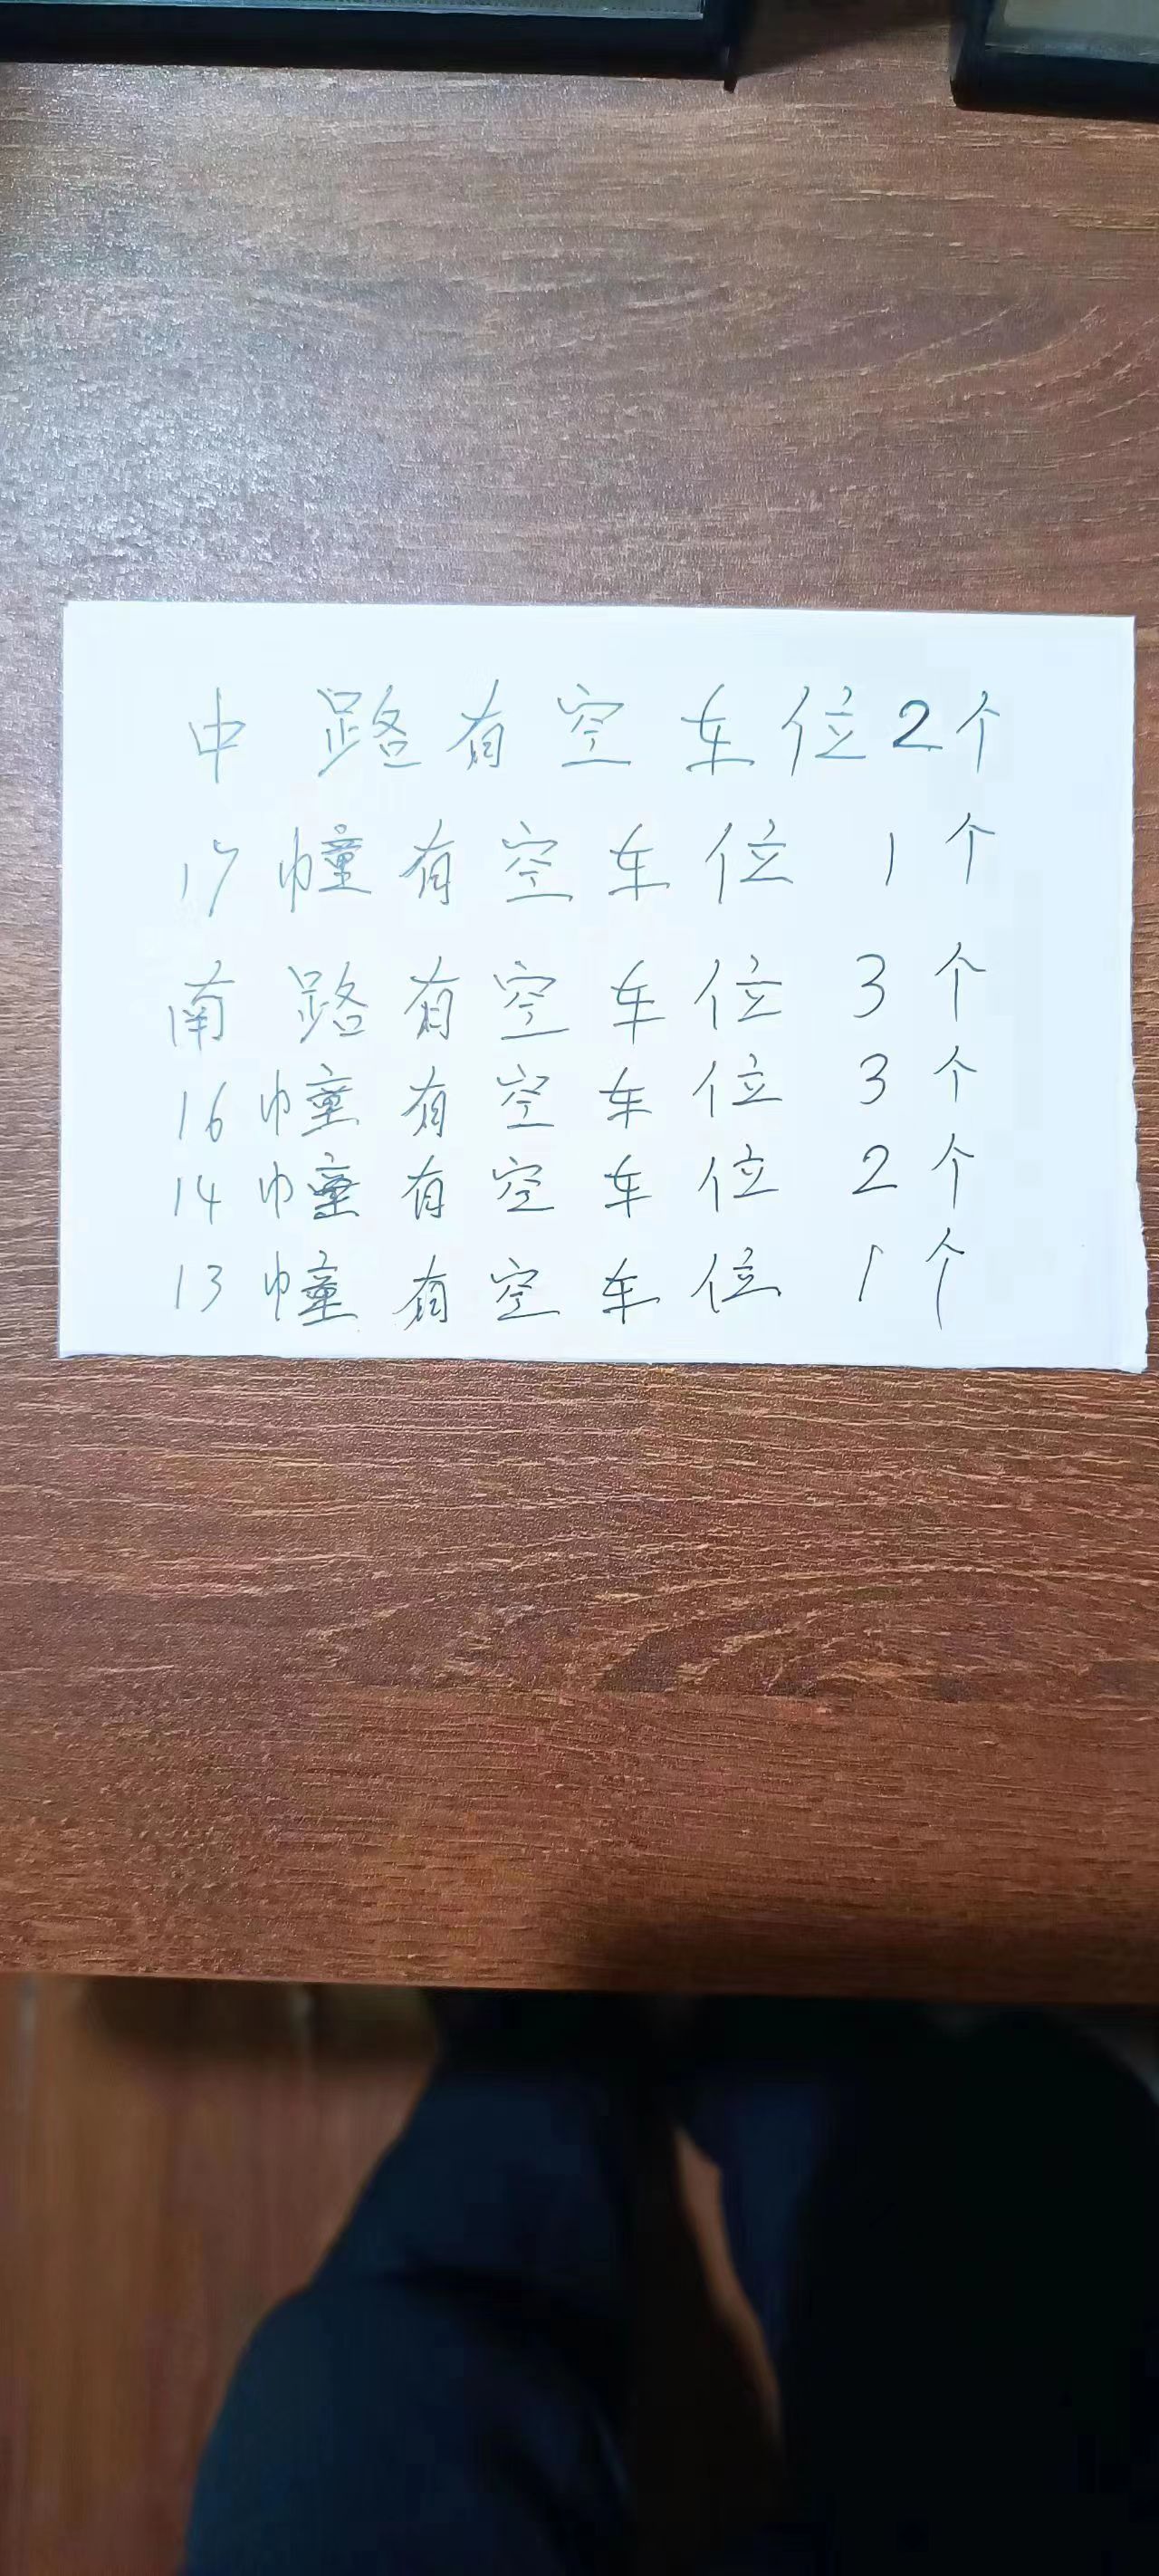 中路有空车位2个
17幢有空车位1个
南路有空车位3个
16幢有空车位3个
14幢有空车位2个
13幢有空车位1个